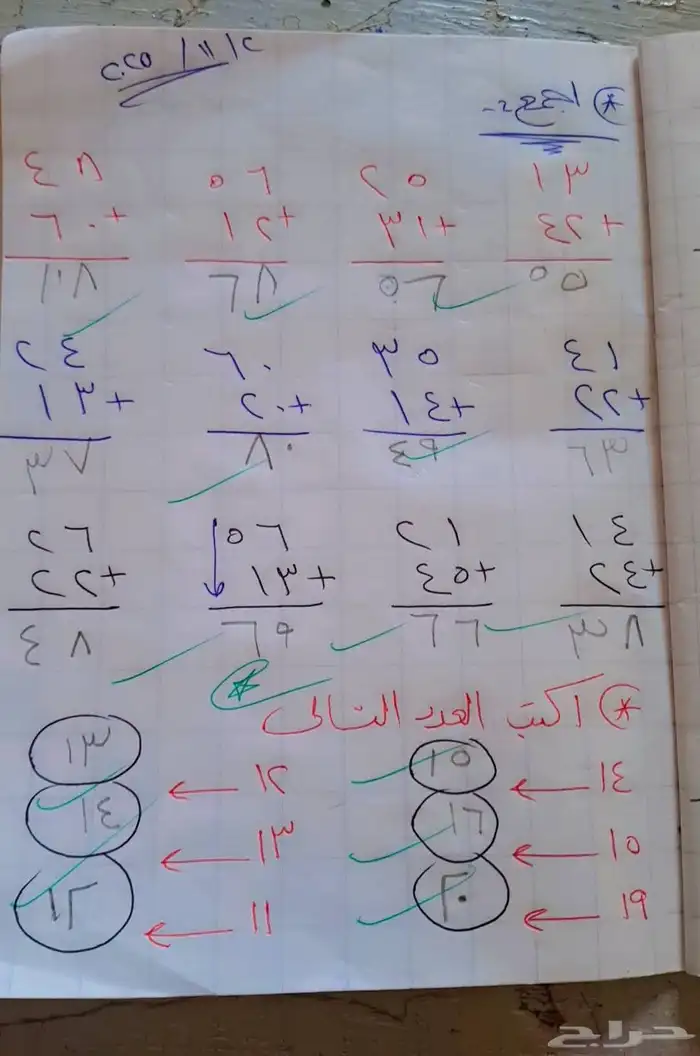 ٢٠٢٥ / ١١ / ٢
* اجمع:-
١٣ ٢٥ ٥٦ ٤٨
+ ٤٢ + ٣١ + ١٢ + ٦٠
٥٥ ٥٦ ٦٨ ١٠٨
٤١ ٣٥ ٦٠ ٢٤
+ ٢٢ + ١٤ + ٢٠ + ١٣
٦٣ ٤٩ ٨٠ ٣٧
١٤ ٢١ ٥٦ ٢٦
+ ٢٤ + ٤٥ + ١٣ + ٢٢
٣٨ ٦٦ ٦٩ ٤٨
* اكتب العدد التالى
١٤ ← ١٥ ١٢ ← ١٣
١٥ ← ١٦ ١٣ ← ١٤
١٩ ← ٢٠ ١١ ← ١٢
حراج